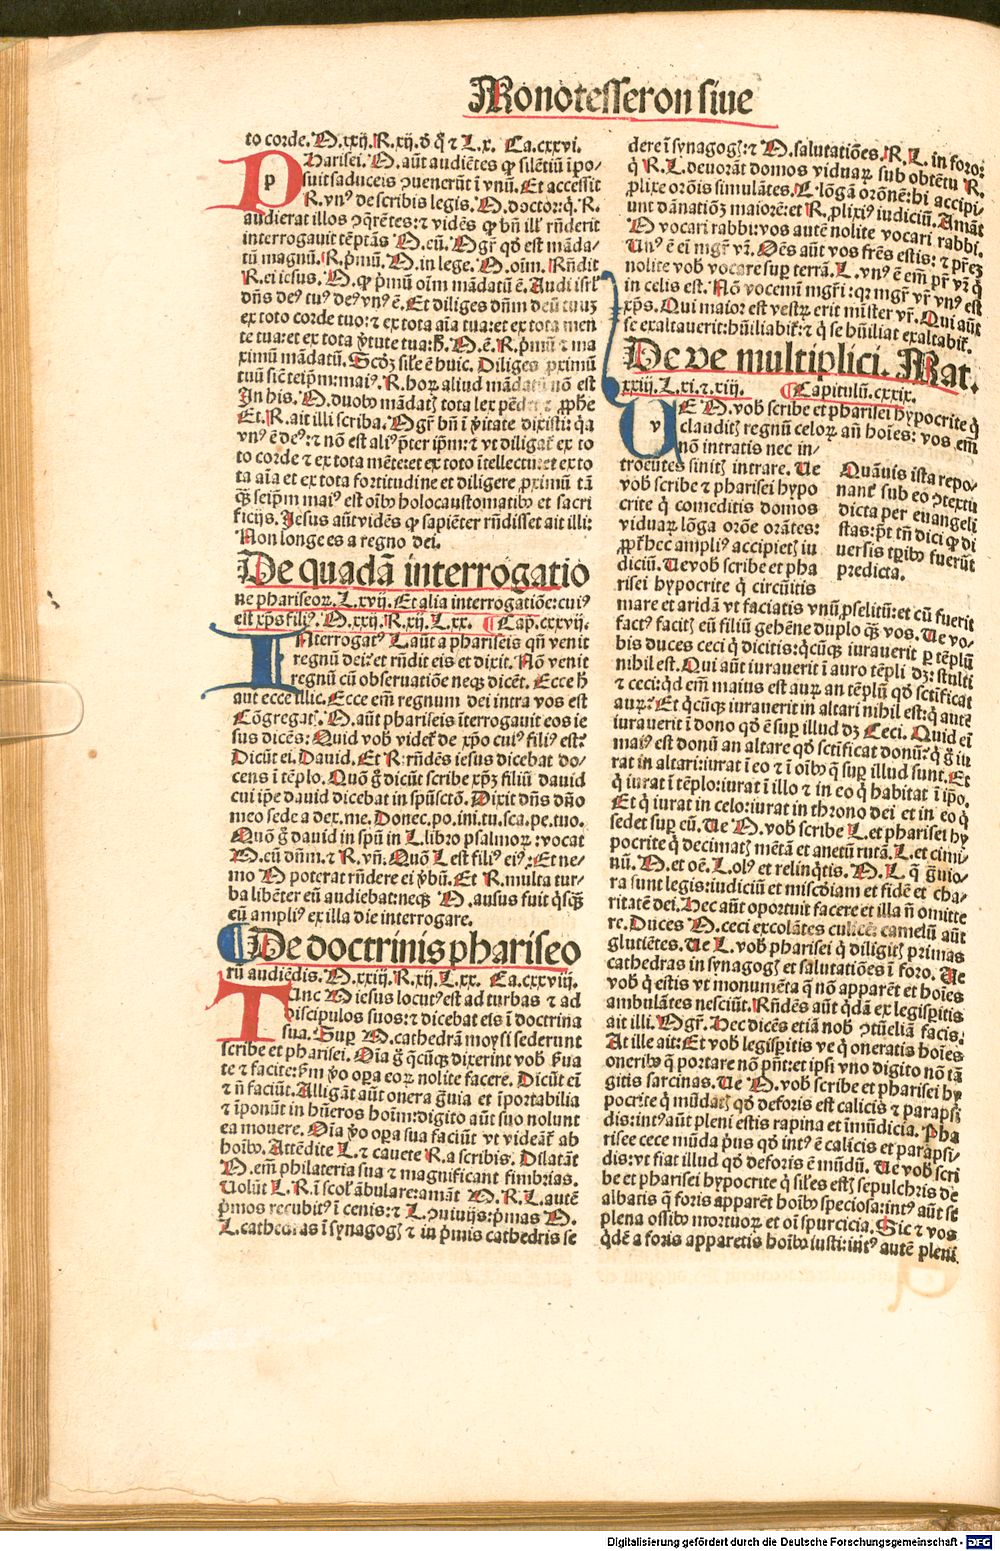 Monotesseron siue
to corde. M.xxij. R.xij. ꝺ q̊ ⁊ L.x. Ca.cxxvi.
PHarisei. M. aūt audiētes ꝙ silētiū īpo⸗
suit saduceis ꝯuenerūt ī vnū. Et accessit
R. vnꝰ de scribis legis. M. doctor: q̇. R.
audierat illos ꝯq̇rētes: ⁊ vidēs ꝙ bn̄ ill̓ rn̄derit
interrogauit tēptās M. eū. Mgr̄ qđ est māda⸗
tū magnū. R. p̓mū. M. in lege. M. oīm. Rn̄dit
R. ei iesus. M. ꝙ p̓mū oīm mādatū ē. Audi isrl̓
dn̄s deꝰ tuꝰ deꝰ vnꝰ ē. Et diliges dn̄m deū tuuꝫ
ex toto corde tuo: ⁊ ex tota aīa tua: et ex tota men
te tua: et ex tota v̓tute tua: h̄. M. ē. R. p̓mū ⁊ ma
ximū mādatū. Scd̓ꝫ sil̓e ē huic. Diliges ꝓximū
tuū sic̄ teip̄m: maiꝰ. R. hoꝝ aliud mādatū nō est
In his. M. duobꝰ mādatꝭ tota lex pēdet ⁊ ꝓphe
Et. R. ait illi scriba. Mgr̄ bn̄ ī v̓itate dixisti: q̓a
vnꝰ ē deꝰ: ⁊ nō est aliꝰ p̄ter ip̄m: ⁊ vt diligat̄ ex to
to corde ⁊ ex tota mēte: et ex toto ītellectu: et ex to
ta aīa et ex tota fortitudine et diligere ꝓximū tā
qꝫ̄ seip̄m maiꝰ est oībꝰ holocaustomatibꝰ et sacri
ficijs. Jesus aūt vidēs ꝙ sapiēter rn̄disset ait illi:
Non longe es a regno dei.
De quadā interrogatio
ne phariseoꝝ. L.xvij. Et alia interrogatiōe: cuiꝰ
est xp̄s filiꝰ. M.xxij. R.xij. L.xx. ¶ Cap̄.cxxvij.
INterrogatꝰ L. aūt a phariseis qn̄ venit
regnū dei: et rn̄dit eis et dixit. Nō venit
regnū cū obseruatiōe neqꝫ dicēt. Ecce h̄
aut ecce illic. Ecce em̄ regnum dei intra vos est
Cōgregatꝭ. M. aūt phariseis īterrogauit eos ie
sus dicēs: Quid vob̓ videt̄ de xp̄o cuiꝰ filiꝰ est:
Dicūt ei. Dauid. Et R. rn̄dēs iesus dicebat do⸗
cens ī tēplo. Quō g̊ dicūt scribe xp̄ꝫ filiū dauid
cui ip̄e dauid dicebat in sp̄usctō. Dixit dn̄s dn̄o
meo sede a dex. me. Donec. po. ini. tu. sca. pe. tuo.
Quō g̊ dauid in sp̄u in L. libro psalmoꝝ: vocat
M. eū dn̄m. ⁊ R. vn̄. Quō L. est filiꝰ eiꝰ: Et ne⸗
mo M poterat rn̄dere ei v̓bū. Et R. multa tur⸗
ba libēter eū audiebat: neqꝫ M. ausus fuit q̇sqꝫ̄
eū ampliꝰ ex illa die interrogare.
¶ De doctrinis phariseo
rū audiēdis. M.xxiij. R.xij. L.xx. Ca.cxxviij.
TUnc M iesus locutꝰ est ad turbas ⁊ ad
discipulos suos: ⁊ dicebat eis ī doctrina
sua. Suꝑ M. cathedrā moysi sederunt
scribe et pharisei. Oīa g̊ q̄cūqꝫ dixerint vob̓ ẜua
te ⁊ facite: ẜm v̓o oꝑa eoꝝ nolite facere. Dicūt eī
⁊ n̄ faciūt. Alligāt aūt onera g̓uia et īportabilia
⁊ īponūt in hūeros hoīm: digito aūt suo nolunt
ea mouere. Oīa v̓o oꝑa sua faciūt vt videāt̄ ab
hoībꝰ. Attēdite L. ⁊ cauete R. a scribis. Dilatāt
M. em̄ philateria sua ⁊ magnificant fimbrias.
Uolūt L. R. ī stol̓ ābulare: amāt M. R. L. autē
p̓mos recubitꝰ ī cenis: ⁊ L. ꝯuiuijs: p̓mas M.
L. cathedras ī synagogꝭ ⁊ in p̓mis cathedris se
dere ī synagogꝭ: ⁊ M. salutatiōes. R. L. in foro:
q̇ R. L. deuorāt domos viduaꝝ sub obtētu R.
ꝓlixe orōis simulātes. L. lōgā orōnē: hi accipi⸗
unt dānatiōꝫ maiorē: et R. ꝓlixiꝰ iudiciū. Amāt
M vocari rabbi: vos autē nolite vocari rabbi.
Unꝰ ē eī mgr̄ vr̄. Oēs aūt vos fr̄es estis: ⁊ pr̄eꝫ
nolite vob̓ vocare suꝑ terrā. L. vnꝰ ē em̄ pr̄ vr̄ q̇
in celis est. Nō vocemī mgr̄i: qꝛ mgr̄ vr̄ vnꝰ est
xp̄s. Qui maior est vestꝝ erit mīster vr̄. Qui aūt
se exaltauerit: hūiliabit̄: ⁊ q̇ se hūiliat exaltabit̄.
De ve multiplici. Mat.
xxiij. L.xi. ⁊.xiij. ¶ Capitulū.cxxix.
UE M. vob̓ scribe et pharisei hypocrite q̇
clauditꝭ regnū celoꝝ an̄ hoīes: vos em̄
nō intratis nec in⸗
troeūtes sinitꝭ intrare. Ue
vob̓ scribe ⁊ pharisei hypo
crite q̇ comeditis domos
viduaꝝ lōga orōe orātes:
ꝓpt̄ hec ampliꝰ accipietꝭ iu
diciū. Ue vob̓ scribe et pha
risei hypocrite q̇ circuītis
Quāuis ista repo⸗
nant̄ sub eo ꝯtextu
dicta per euangeli
stas: pt̄ tn̄ dici ꝙ di
uersis tꝑibꝰ fuerūt
predicta.
mare et aridā vt faciatis vnū ꝓselitū: et cū fuerit
factꝰ facitꝭ eū filiū gehēne duplo qꝫ̄ vos. Ue vo⸗
bis duces ceci q̇ dicitis: q̇cūqꝫ iurauerit ꝑ tēplū
nihil est. Qui aūt iurauerit ī auro tēpli dꝫ: stulti
⁊ ceci: qđ em̄ maius est auꝝ an tēplū qđ sctificat
auꝝ: Et q̇cūqꝫ iurauerit in altari nihil est: q̇ autē
iurauerit ī dono qđ ē suꝑ illud dꝫ Ceci. Quid eī
maiꝰ est donū an altare qđ sctificat donū: q̇ g̊ iu
rat in altari: iurat ī eo ⁊ ī oībꝰ q̄ suꝑ illud sunt. Et
q̇ iurat ī tēplo: iurat ī illo ⁊ in eo q̇ habitat ī ip̄o.
Et q̇ iurat in celo: iurat in throno dei et in eo q̇
sedet suꝑ eū. Ue M. vob̓ scribe L. et pharisei hy
pocrite q̇ decimatꝭ mētā et anetū rutā. L. et cimi⸗
nū. M. et oē. L. olꝰ et relinq̇tis. M. L q̄ g̓uio⸗
ra sunt legis: iudiciū et mīscđiam et fidē et cha⸗
ritatē dei. Hec aūt oportuit facere et illa n̄ omitte
re. Duces M. ceci excolātes culicē: camelū aūt
glutiētes. Ue L. vob̓ pharisei q̇ diligitꝭ primas
cathedras in synagogꝭ et salutatiōes ī foro. Ue
vob̓ q̇ estis vt monumēta q̄ nō apparēt et hoīes
ambulātes nesciūt. Rn̄dēs aūt q̇dā ex legisp̄itis
ait illi. Mgr̄. Hec dicēs etiā nob̓ ꝯtūeliā facis.
At ille ait: Et vob̓ legisp̄itis ve q̇ oneratis hoīes
oneribꝰ q̄ portare nō pn̄t: et ipsi vno digito nō tā
gitis sarcinas. Ue M. vob̓ scribe et pharisei hy
pocrite q̇ mūdatꝭ qđ deforis est calicis ⁊ parapsi
dis: intꝰ aūt pleni estis rapina et īmūdicia. Pha
risee cece mūda p̓us qđ intꝰ ē calicis et parapsi⸗
dis: vt fiat illud qđ deforis ē mūdū. Ue vob̓ scri
be et pharisei hypocrite q̇ sil̓es estꝭ sepulchris de
albatis q̄ foris apparēt hoībꝰ speciosa: intꝰ aūt sē
plena ossibꝰ mortuoꝝ et oī spurcicia. Sic ⁊ vos
q̇dē a foris apparetis hoībꝰ iusti: intꝰ autē pleni
Digitalisierung gefördert durch die Deutsche Forschungsgemeinschaft - DFG